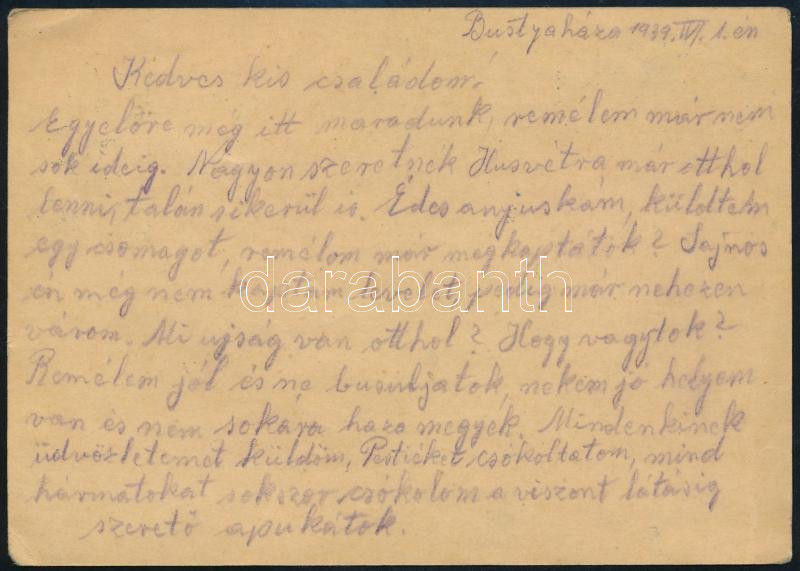 Bustyaháza 1939. IV. 1. én
Kedves kis családom!
Egyelőre még itt maradunk, remélem már nem
sok ideig. Nagyon szeretnék Husvétra már otthol
lenni, talán sikerül is. Édes anyjuskám, küldtem
egy csomagot, remélem már megkaptátok? Sajnos
én még nem kaptam levelet, pedig már nehezen
várom. Mi ujság van otthol? Hogy vagytok?
Remélem jól és ne busuljatok, nekem jó helyem
van és nem sokára haza megyek. Mindenkinek
üdvözletemet küldöm, Pestieket csókoltatom, mind
hármatokat sokszor csókolom a viszont látásig
szerető apukátok.
darabanth